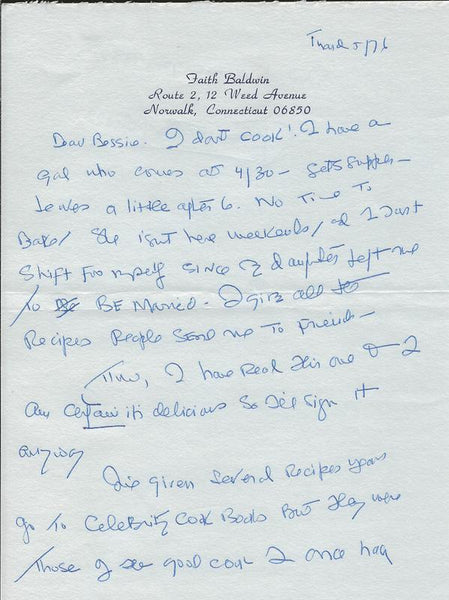 Thurs 5/76
Faith Baldwin
Route 2, 12 Weed Avenue
Norwalk, Connecticut 06850
Dear Bessie. I don't cook! I have a
gal who comes at 4/30 — gets supper —
leaves a little after 6. No Time to
Bake/ She isn't here weekends/ and I just
Shift For myself since 2 daughters left me
To BE Married. I give all
Recipes People send me To Friends —
I have Read this one & I
am certain it's delicious so I'll sign it
anyway
I've given several Recipes years
go To Celebrity Cook Books But they were
Those of good cook I once had